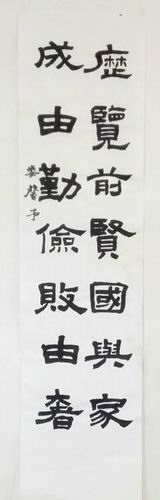 歷覽前賢國與家
成由勤儉敗由奢
娄馨予